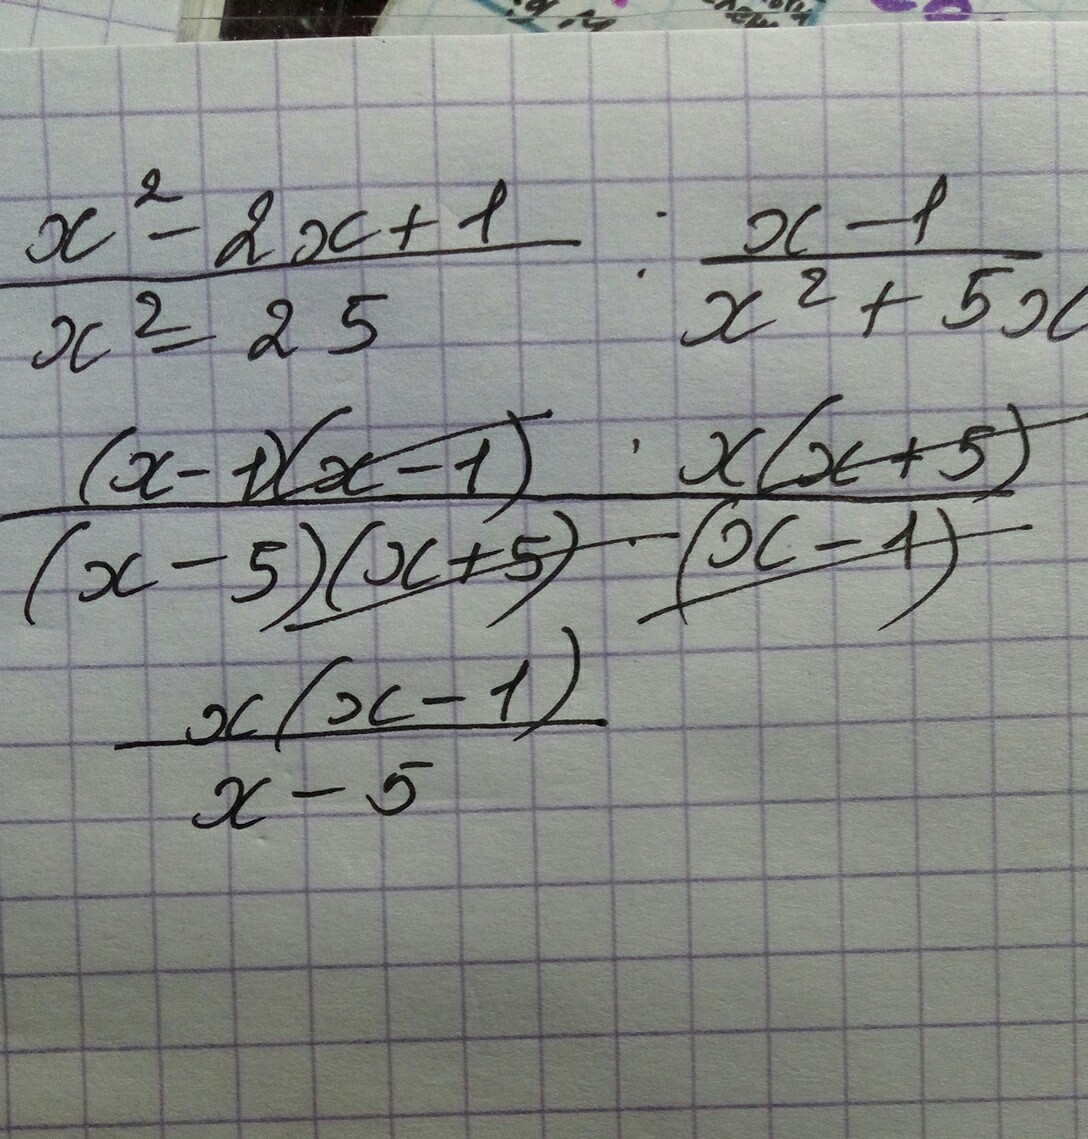 x² - 2x + 1 : x - 1
x² - 25 x² + 5x
(x - 1)(x - 1) · x(x + 5)
(x - 5)(x + 5) · (x - 1)
x(x - 1)
x - 5